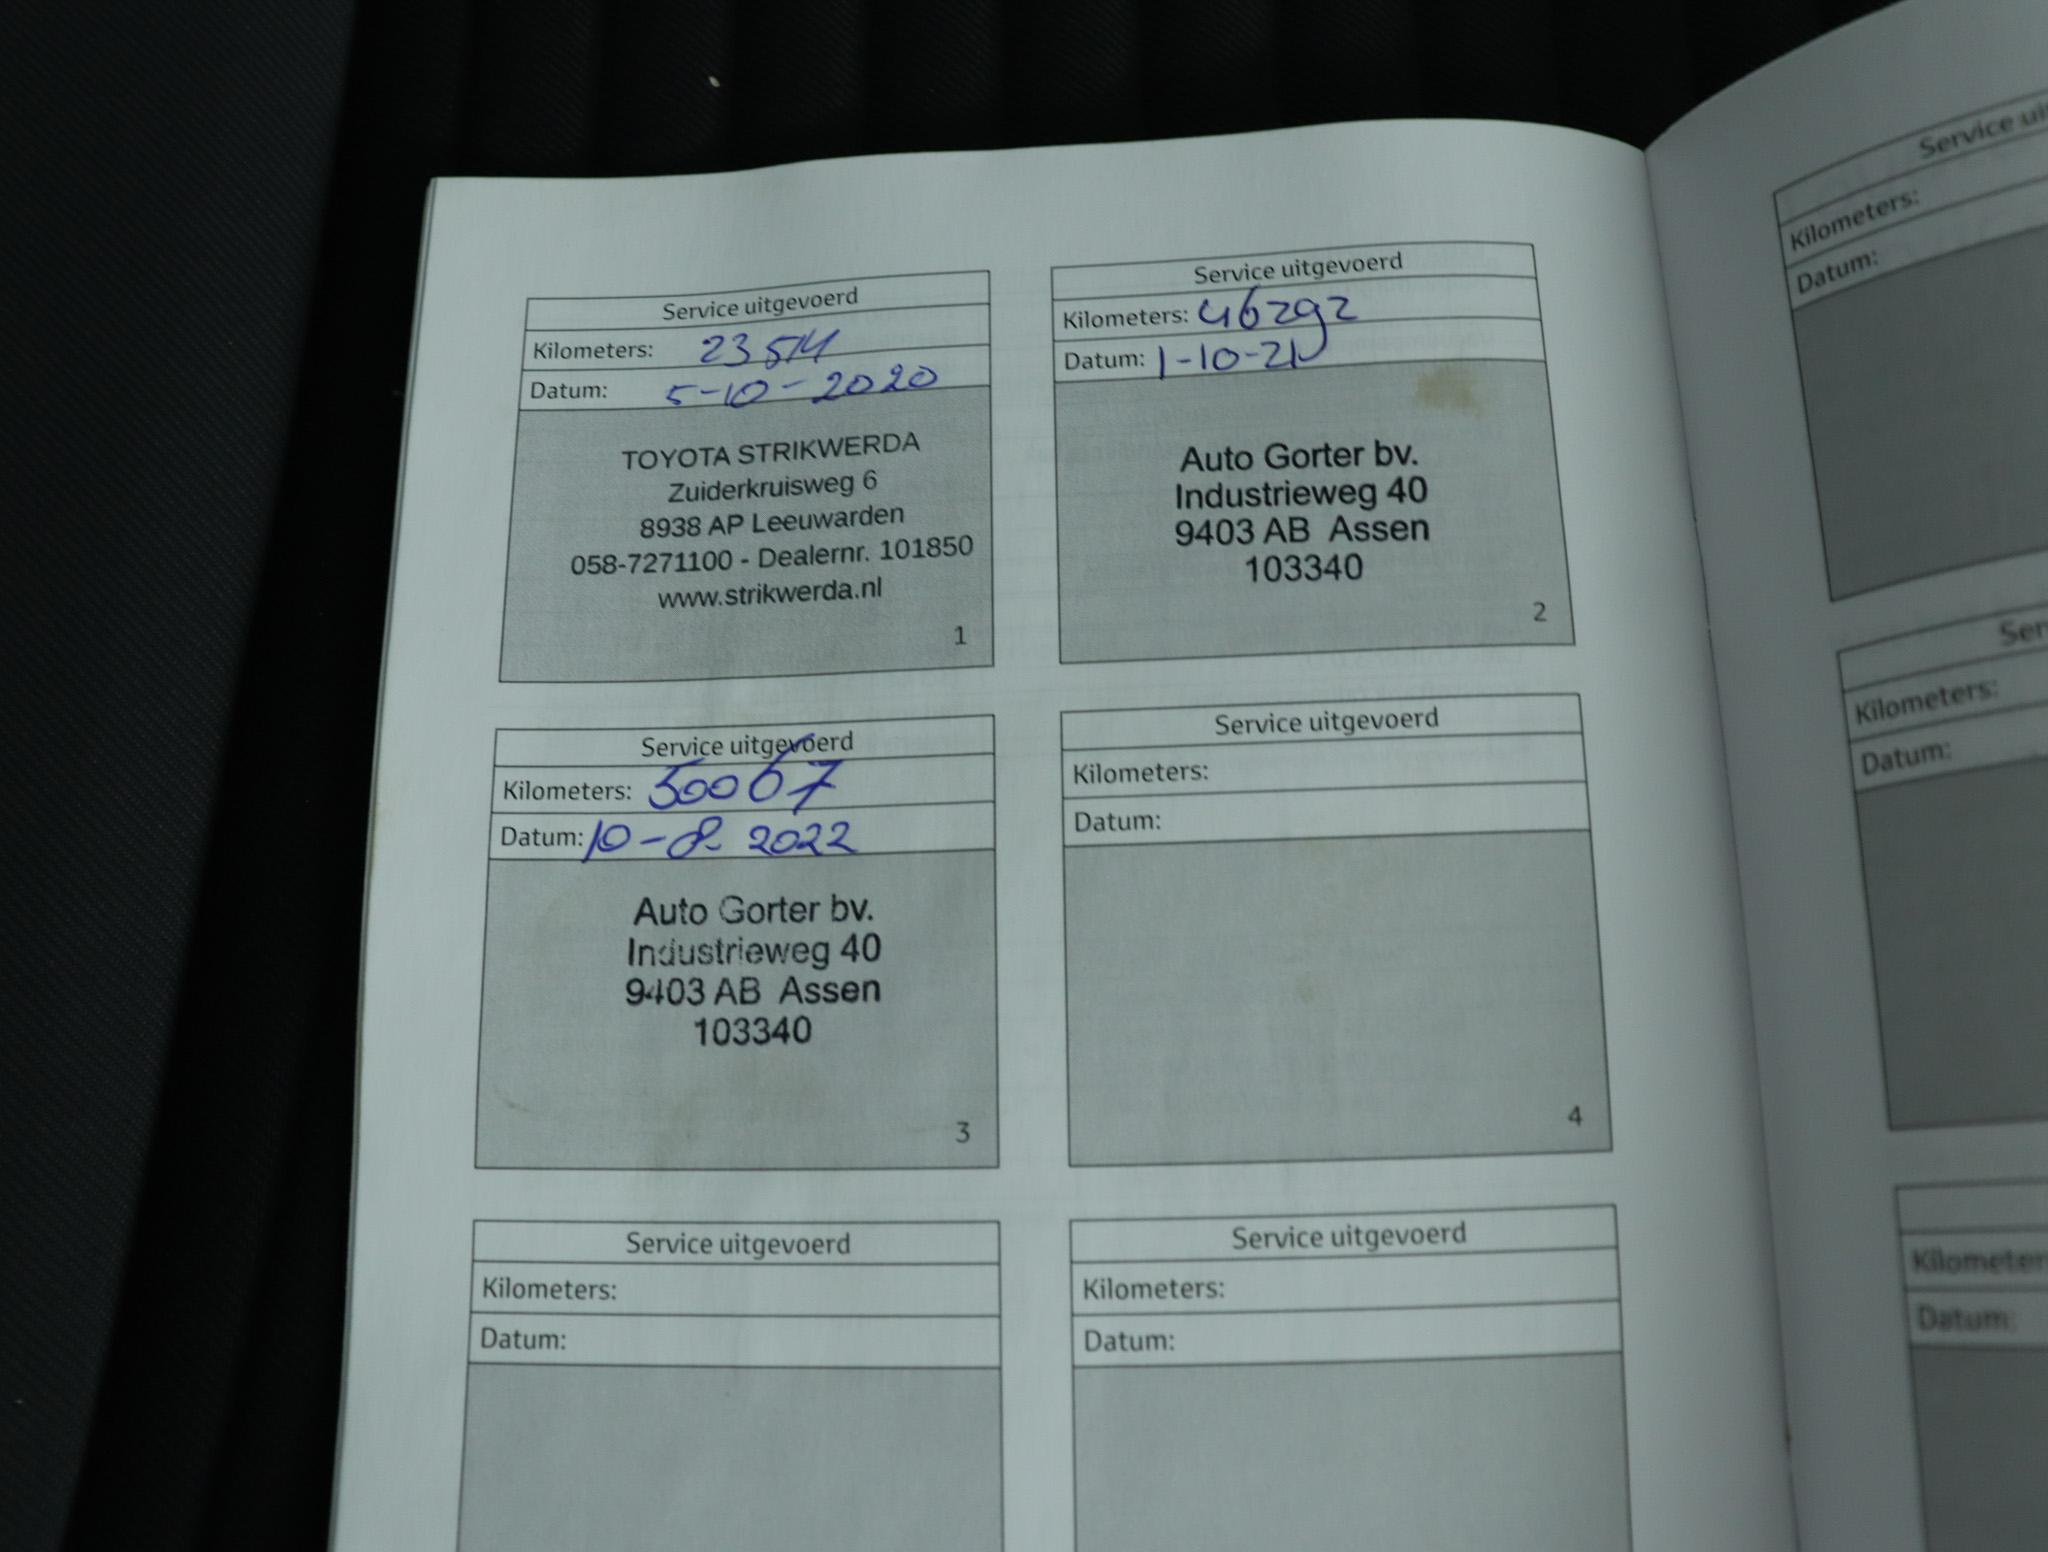 Service uitgevoerd
Kilometers: 23514
Datum: 5-10-2020
TOYOTA STRIKWERDA
Zuiderkruisweg 6
8938 AP Leeuwarden
058-7271100 - Dealernr. 101850
www.strikwerda.nl
1
Service uitgevoerd
Kilometers: 46292
Datum: 1-10-21
Auto Gorter bv.
Industrieweg 40
9403 AB Assen
103340
2
Service uitgevoerd
Kilometers: 50067
Datum: 10-8-2022
Auto Gorter bv.
Industrieweg 40
9403 AB Assen
103340
3
Service uitgevoerd
Kilometers:
Datum:
4
Service uitgevoerd
Kilometers:
Datum:
Service uitgevoerd
Kilometers:
Datum:
Service
Kilometers:
Datum:
Kilometers:
Datum:
Datum: